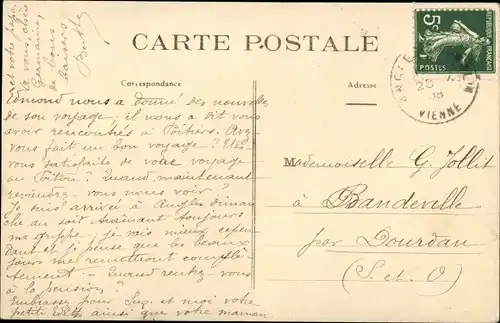 et votre papa.
à vous, chère
Germaine,
de bons
baisers
Berthe
CARTE POSTALE
Correspondance
Adresse
RÉPUBLIQUE FRANÇAISE
5c
POSTES
ANGLES
20
08
VIENNE
Edmond nous a donné des nouvelles
de son voyage; il nous a dit vous
avoir rencontrés à Poitiers. Avez
vous fait un bon voyage? Etes
vous satisfaite de votre voyage
au Poitou? Quand maintenant
reviendrez vous nous voir?
Je suis arrivée à Angles diman
che au soir traînant toujours
ma grippe; je vais mieux cepen
dant et je pense que les beaux
jours me remettront complè
tement - Quand rentrez-vous
à la pension?
Embrassez pour Suz. et moi votre
petite Edith ainsi que votre maman
Mademoiselle G. Jollit
à Bandeville
par Dourdan
(S. et O)